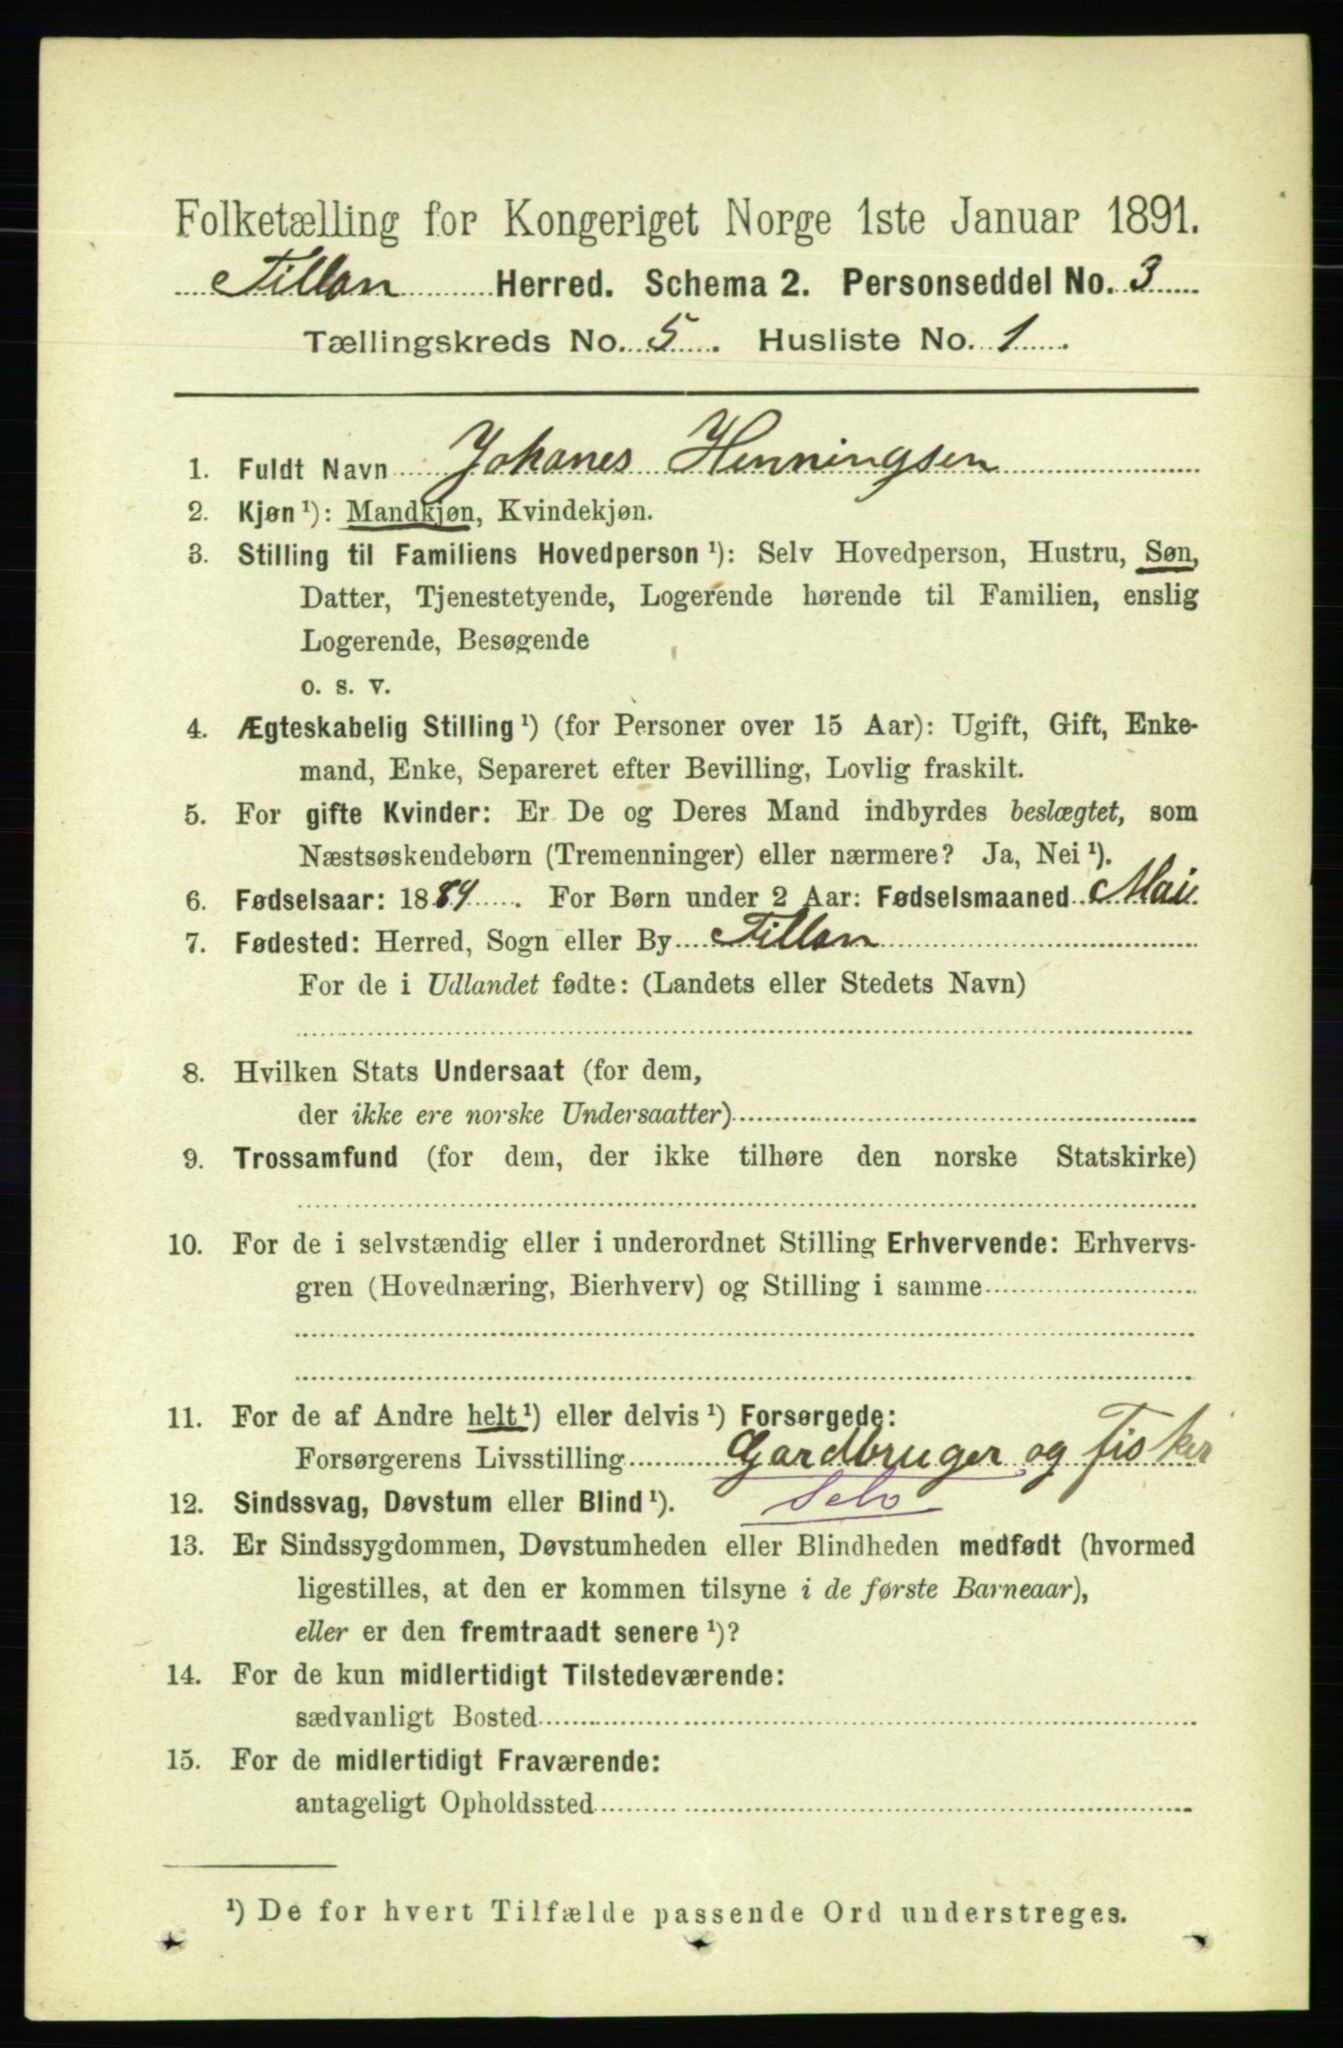 Folketælling for Kongeriget Norge 1ste Januar 1891.
Fillan Herred. Schema 2. Personseddel No. 3
Tællingskreds No. 5. Husliste No. 1.
1. Fuldt Navn Johanes Henningsen
2. Kjøn ¹): Mandkjøn, Kvindekjøn.
3. Stilling til Familiens Hovedperson ¹): Selv Hovedperson, Hustru, Søn,
Datter, Tjenestetyende, Logerende hørende til Familien, enslig
Logerende, Besøgende
o. s. v.
4. Ægteskabelig Stilling ¹) (for Personer over 15 Aar): Ugift, Gift, Enke-
mand, Enke, Separeret efter Bevilling, Lovlig fraskilt.
5. For gifte Kvinder: Er De og Deres Mand indbyrdes beslægtet, som
Næstsøskendebørn (Tremenninger) eller nærmere? Ja, Nei ¹).
6. Fødselsaar: 1884. For Børn under 2 Aar: Fødselsmaaned Mai
7. Fødested: Herred, Sogn eller By Fillan
For de i Udlandet fødte: (Landets eller Stedets Navn)
8. Hvilken Stats Undersaat (for dem,
der ikke ere norske Undersaatter)
9. Trossamfund (for dem, der ikke tilhøre den norske Statskirke)
10. For de i selvstændig eller i underordnet Stilling Erhvervende: Erhvervs-
gren (Hovednæring, Bierhverv) og Stilling i samme
11. For de af Andre helt ¹) eller delvis ¹) Forsørgede:
Forsørgerens Livsstilling Gardbruger og Fisker
12. Sindssvag, Døvstum eller Blind ¹). Selv
13. Er Sindssygdommen, Døvstumheden eller Blindheden medfødt (hvormed
ligestilles, at den er kommen tilsyne i de første Barneaar),
eller er den fremtraadt senere ¹)?
14. For de kun midlertidigt Tilstedeværende:
sædvanligt Bosted
15. For de midlertidigt Fraværende:
antageligt Opholdssted
¹) De for hvert Tilfælde passende Ord understreges.